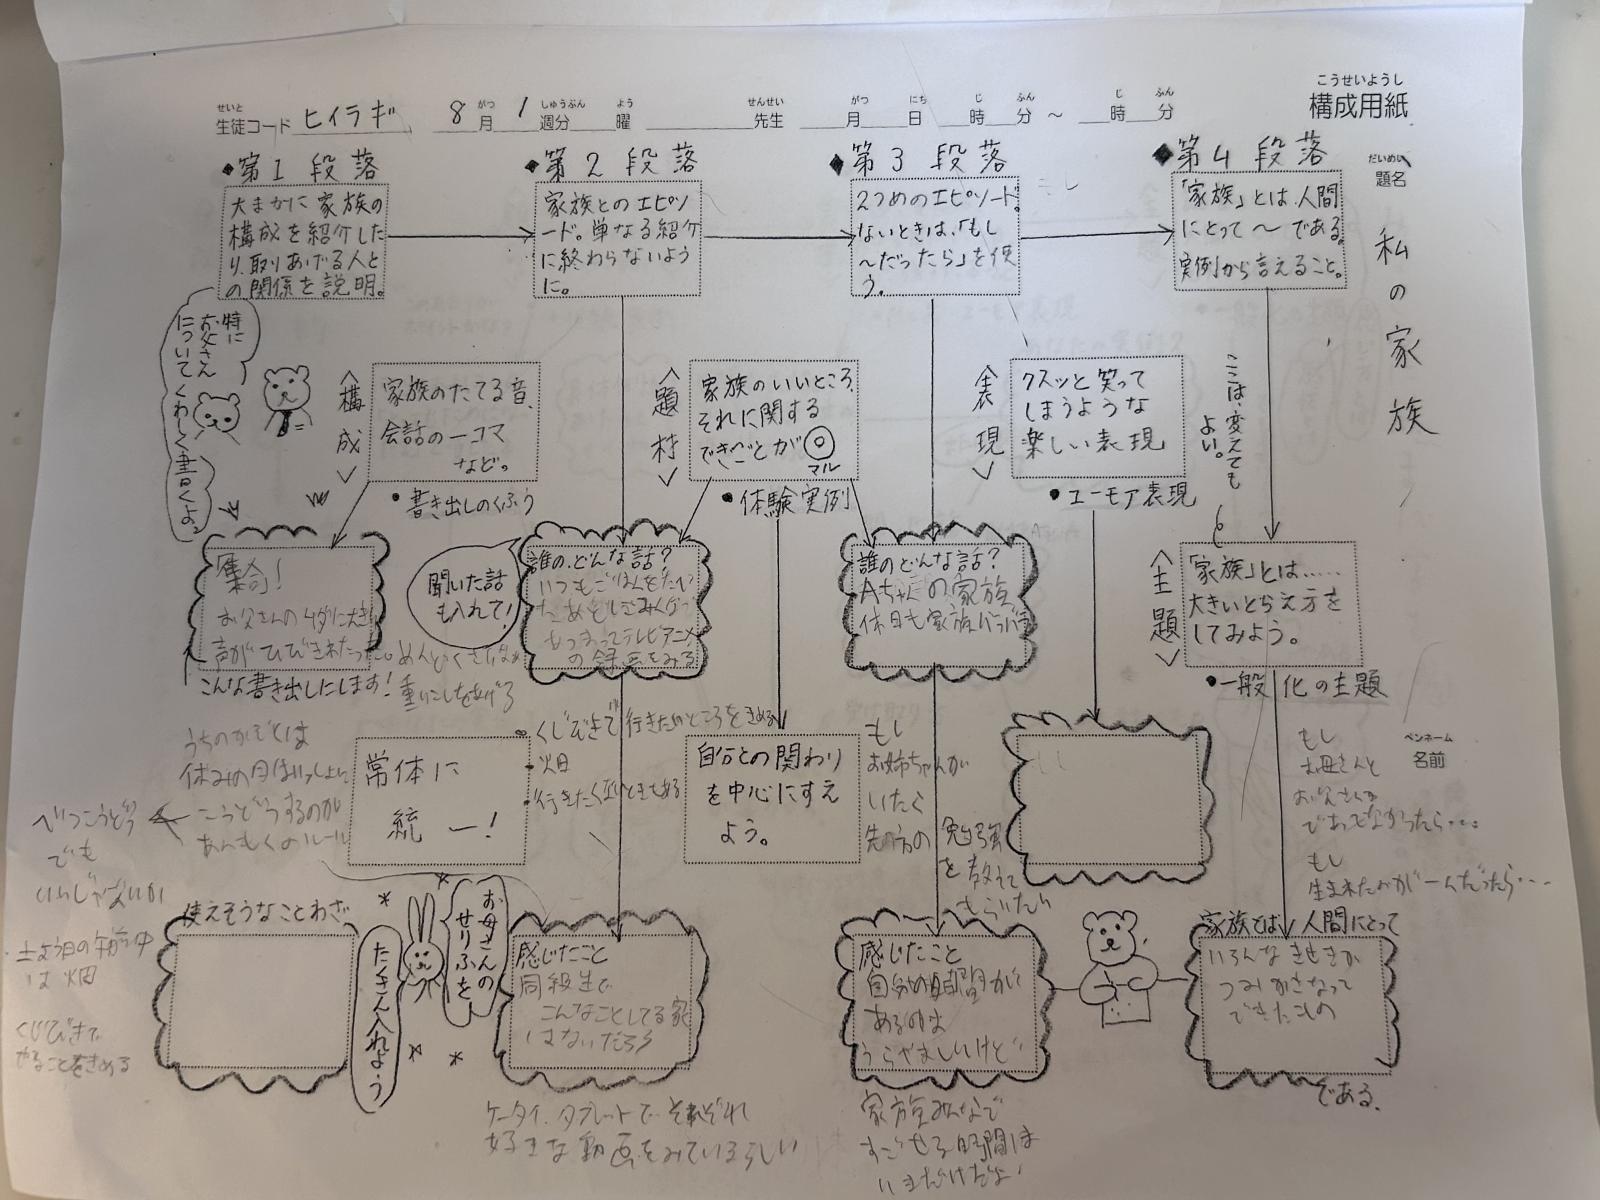 構成用紙
こうせいようし
生徒コード ヒイラギ 8月1週分 曜 先生 月 日 時 分 ～ 時 分
せいと がつ しゅうぶん よう せんせい がつ にち じ ふん じ ふん
題名
だいめい
私の家族
◆第1段落
大まかに家族の
構成を紹介した
り、取りあげる人と
の関係を説明。
◆第2段落
家族とのエピソ
ード。単なる紹介
に終わらないよう
に。
◆第3段落
2つめのエピソード。
ないときは、「もし
～だったら」を使
う。
◆第4段落
「家族」とは、人間
にとって～である。
実例から言えること。
特に
お父さん
について
くわしく書くよ。
＜構成＞
家族のたてる音、
会話の一コマ
など。
●書き出しのくふう
＜題材＞
家族のいいところ、
それに関する
できごとが◎
マル
●体験実例
＜表現＞
クスッと笑って
しまうような
楽しい表現
●ユーモア表現
ここは、変えても
よい。
＜主題＞
「家族」とは……
大きいとらえ方を
してみよう。
●一般化の主題
「集合！
お父さんの
声がひびきわたった。
こんな書き出しにします！
めんどくさい
重いこしをあげろ
聞いた話
も入れて！
誰の、どんな話？
いつもごはんをたべ
たあと
あつまってテレビアニメ
の録画をみる
誰のどんな話？
Aちゃんの家族
休日も家族バラバラ
うちのかぞくは
休みの日はいっしょに
こうどうするのが
あんもくのルール
べつこうどう
でも
いいじゃないか
土よう日の午前中
は畑
くじびきで
やることをきめる
常体に
統一！
・くじびきで行きたいところをきめる
・畑
・行きたくないときもある
自分との関わり
を中心にすえ
よう。
もし
お姉ちゃんが
いたら
勉強
を教えて
もらいたい
ペンネーム
名前
もし
お母さんと
お父さんが
であってなかったら…
もし
生まれたのが一人だったら…
使えそうなことわざ
お母さんの
せりふをし
たくさん入れよう
感じたこと
同級生で
こんなことしてる家
はないだろう
ケータイ、タブレットでそれぞれ
好きな動画をみているらしい
感じたこと
自分の時間が
あるのは
うらやましいけど
家族みんなで
すごせる時間は
いまだけだよ
家族とは、人間にとって
いろんなきせきが
つみかさなって
できたもの
である。